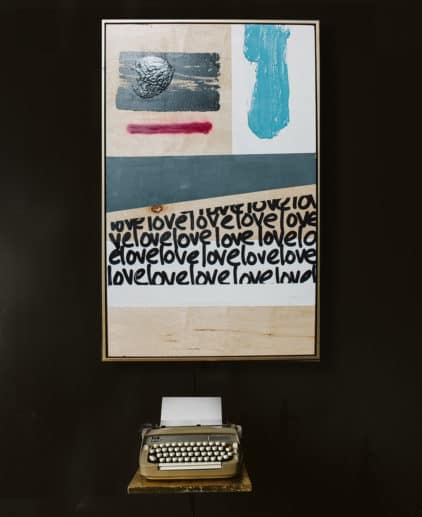 love love love
velovelove love love lo
elovelovelovelovelo
lovelovelovelovelove